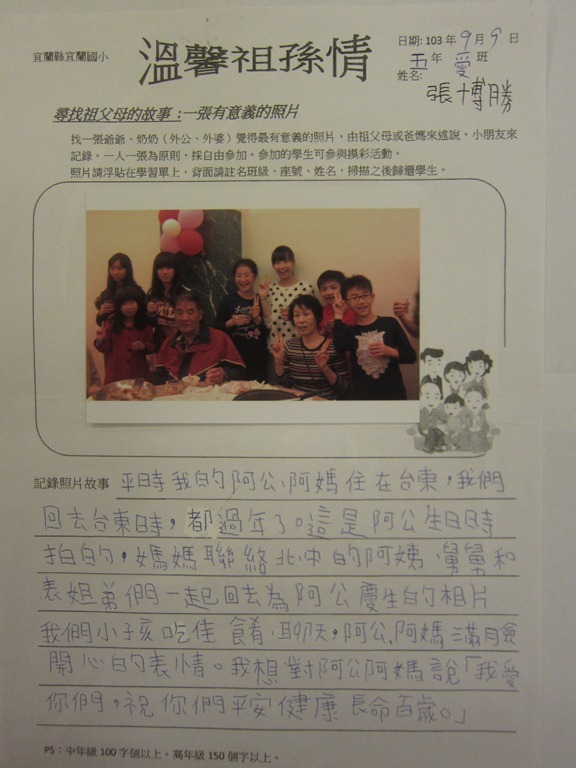 宜蘭縣宜蘭國小
溫馨祖孫情
日期: 103 年 9 月 9 日
五 年 愛 班
姓名: 張博勝
尋找祖父母的故事:一張有意義的照片
找一張爺爺、奶奶（外公、外婆）覺得最有意義的照片，由祖父母或爸媽來述說，小朋友來
記錄。一人一張為原則，採自由參加。參加的學生可參與摸彩活動。
照片請浮貼在學習單上，背面請註名班級、座號、姓名，掃描之後歸還學生。
記錄照片故事 平時我的阿公、阿媽住在台東，我們
回去台東時，都過年了。這是阿公生日時
拍的，媽媽聯絡北中的阿姨、舅舅和
表姐弟們一起回去為阿公慶生的相片
我們小孩吃佳餚、聊天，阿公、阿媽滿臉
開心的表情。我想對阿公阿媽說「我愛
你們，祝你們平安健康長命百歲。」
PS：中年級 100 字個以上。高年級 150 個字以上。